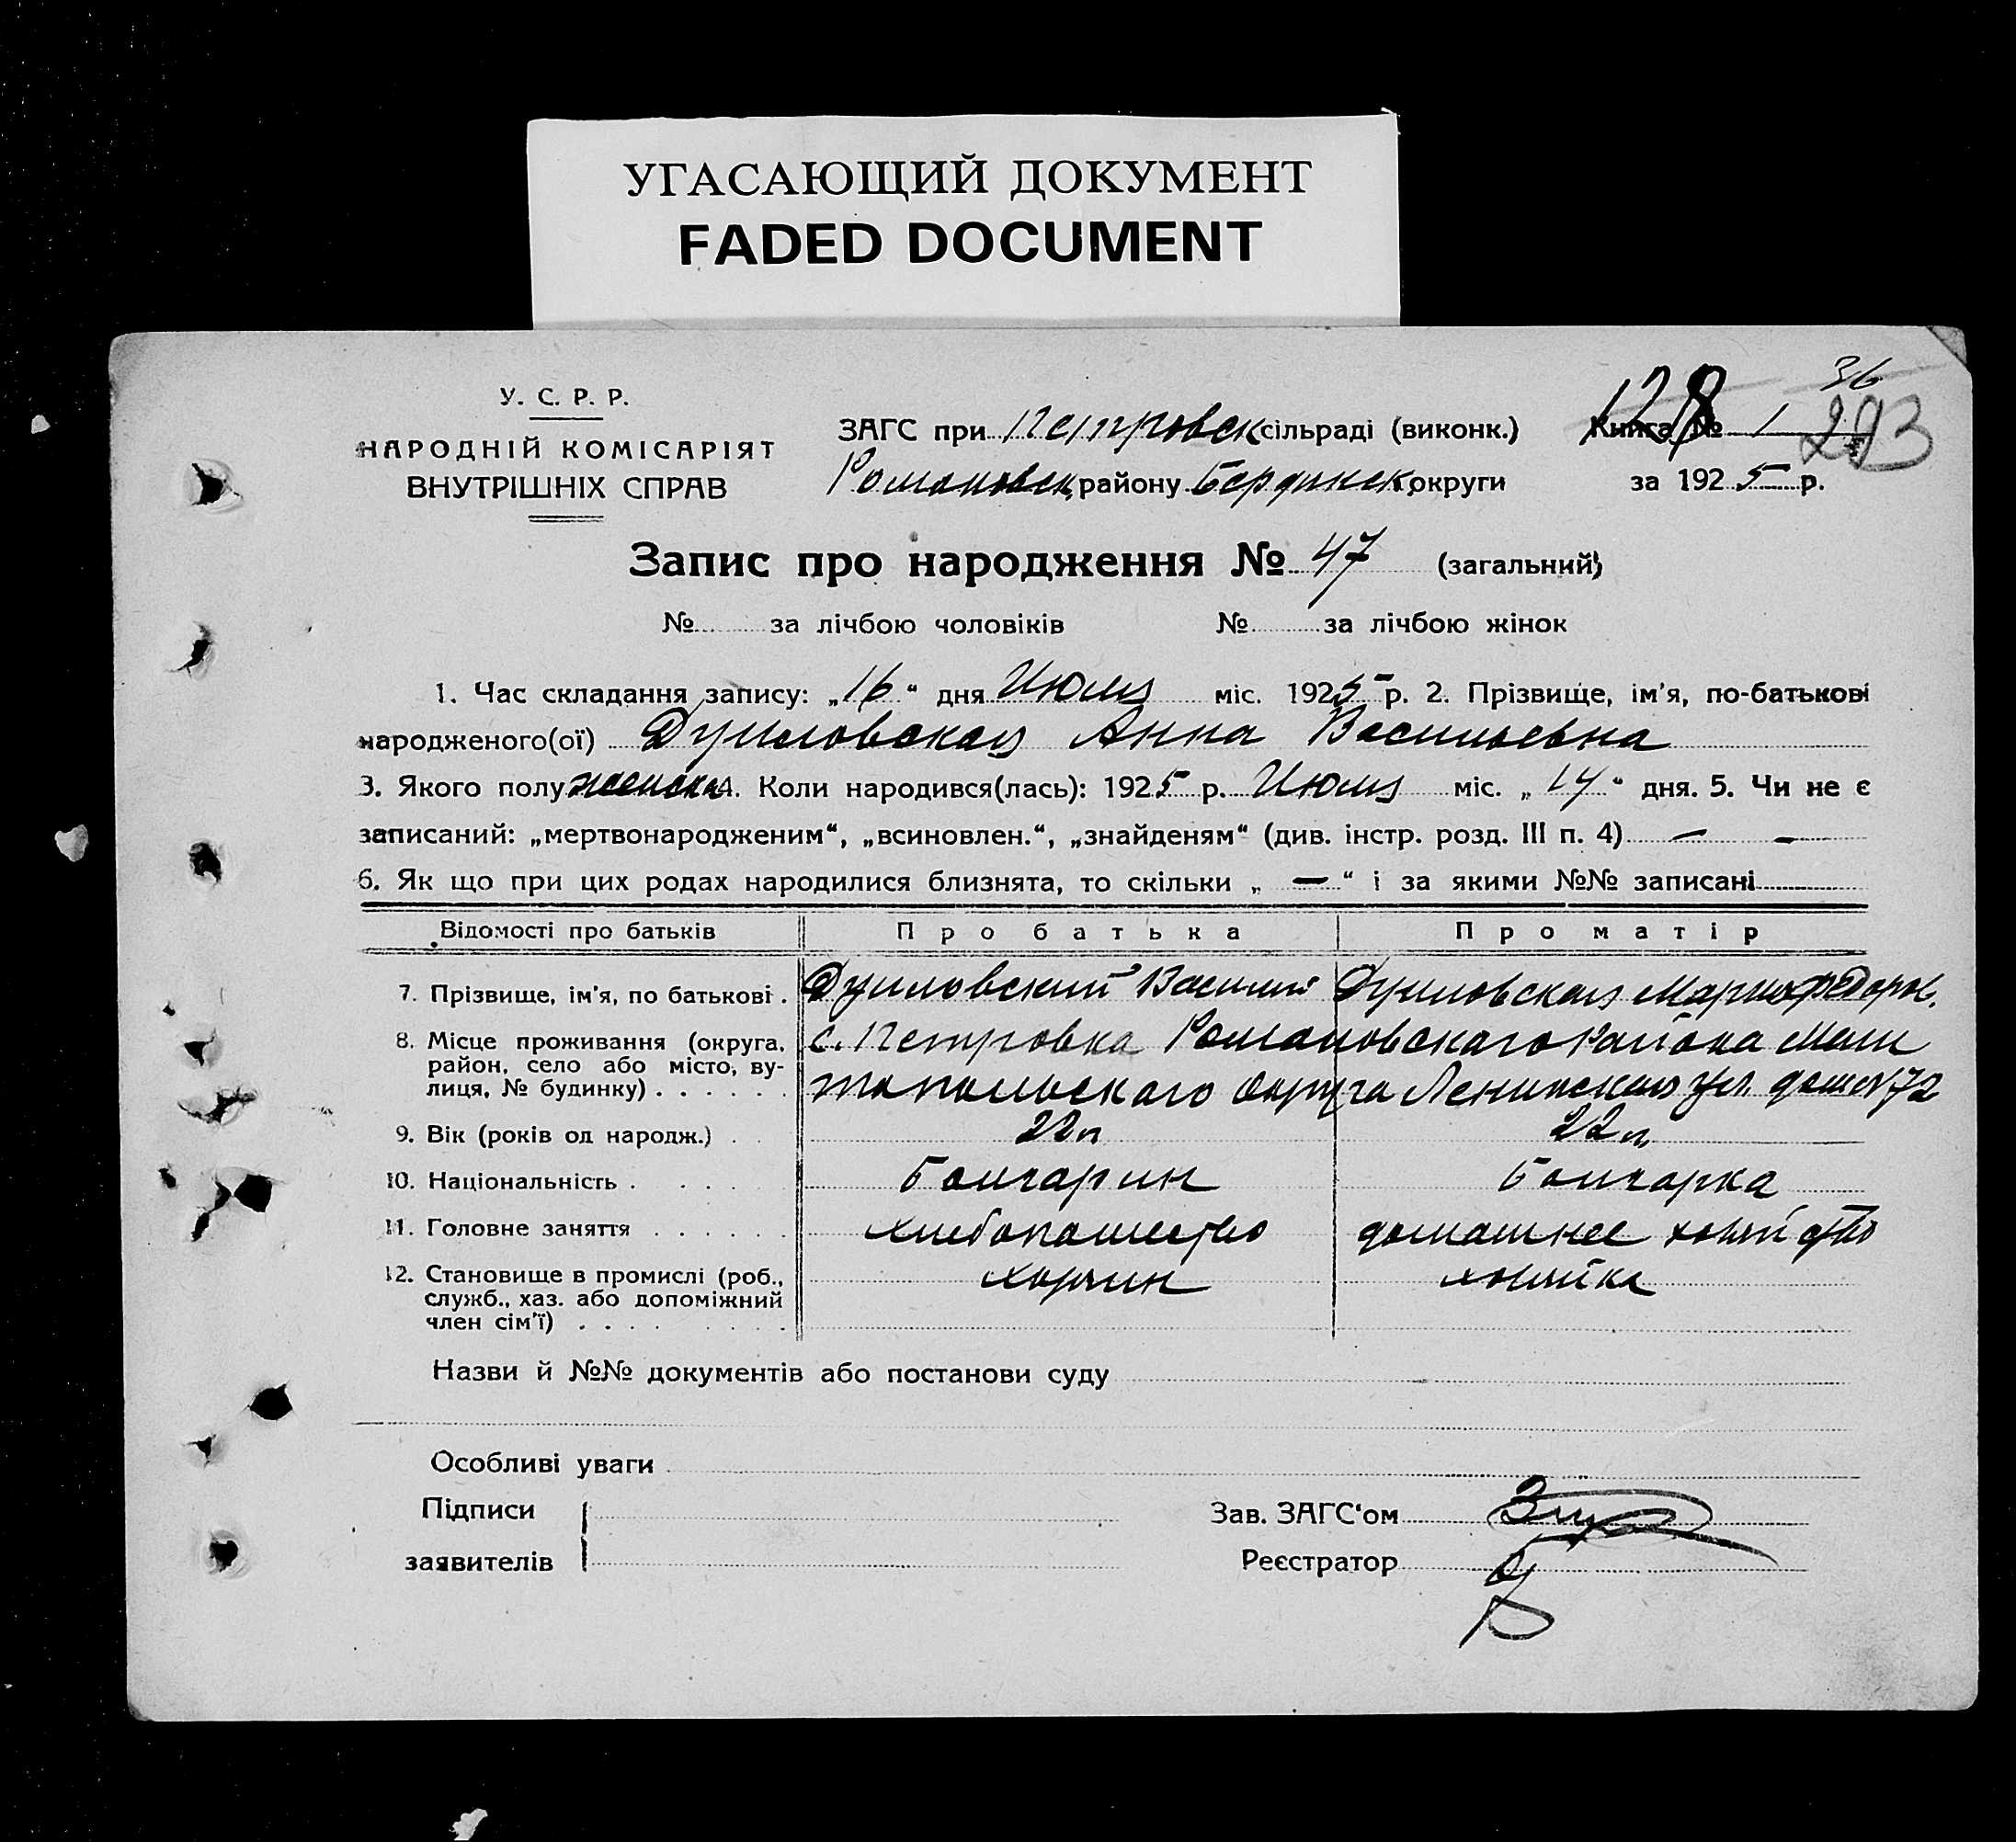 УГАСАЮЩИЙ ДОКУМЕНТ
FADED DOCUMENT
У. С. Р. Р.
НАРОДНІЙ КОМІСАРІЯТ
ВНУТРІШНІХ СПРАВ
ЗАГС при Петровск сільраді (виконк.)
Романовск району Бердянск округи
Книга № 1
128
36
293
за 1925 р.
Запис про народження № 47 (загальний)
№ за лічбою чоловіків № за лічбою жінок
1. Час складання запису: „16“ дня Июля міс. 1925 р. 2. Прізвище, ім'я, по-батькові
народженого(ої) Дуиловская Анна Васильевна
3. Якого полу женска 4. Коли народився(лась): 1925 р. Июля міс. „14“ дня. 5. Чи не є
записаний: „мертвонародженим“, „всиновлен.“, „знайденям“ (див. інстр. розд. III п. 4) — —
6. Як що при цих родах народилися близнята, то скільки „ — “ і за якими №№ записані
Відомості про батьків Про батька Про матір
7. Прізвище, ім'я, по батькові . Дуиловский Василий Дуиловская Мария Федоров.
8. Місце проживання (округа, с. Петровка Романовскаго Района Мели
район, село або місто, ву-
лиця, № будинку) . . . . . . топольскаго округа Ленинская ул. дом № 72
9. Вік (років од народж.) . . 22 л 22 л
10. Національність . . . . Болгарин Болгарка
11. Головне заняття . . . . . . хлебопашество домашнее хозяйство
12. Становище в промислі (роб., хозяин хозяйка
служб., хаз. або допоміжний
член сім'ї) . . . . . . . .
Назви й №№ документів або постанови суду
Особливі уваги
Підписи
заявителів
Зав. ЗАГС'ом
Реєстратор